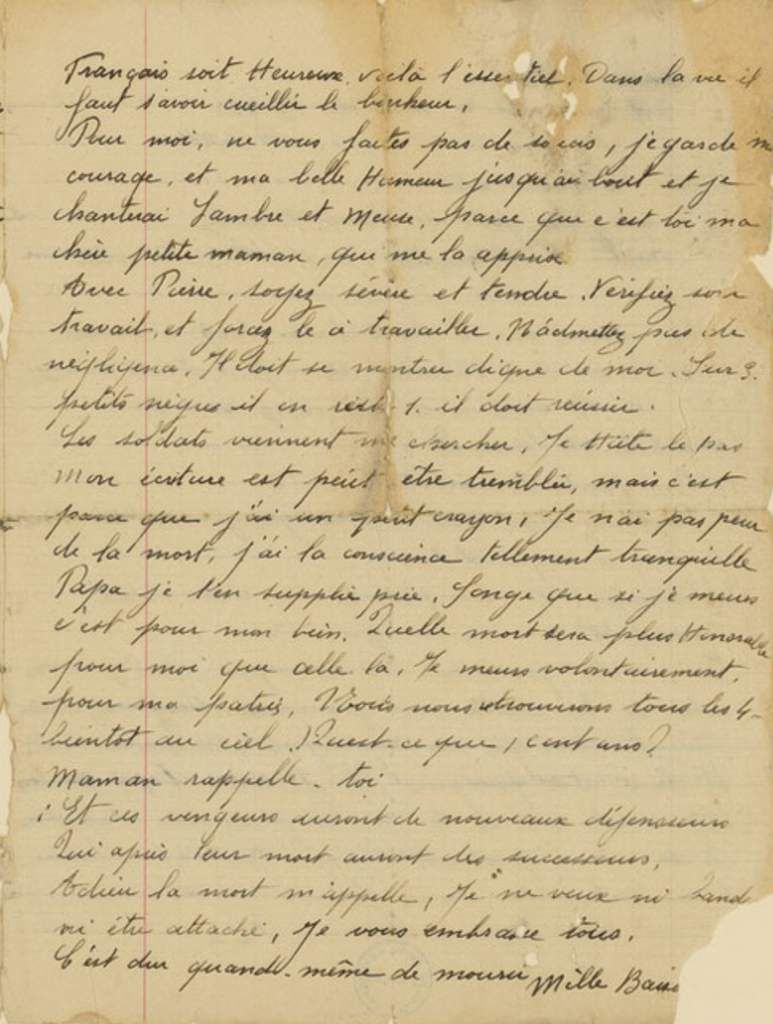 Français soit Heureux, voilà l'essentiel. Dans la vie il
faut savoir cueillir le bonheur.
Pour moi, ne vous faites pas de soucis, je garde mon
courage, et ma belle Humeur jusqu'au bout et je
chanterai Sambre et Meuse, parce que c'est toi ma
chère petite maman, qui me la apprise
Avec Pierre, soyez sévère et tendre. Verifiez son
travail, et forcez le à travailler. N'admettez pas de
négligence. Il doit se montrer digne de moi. Sur 3.
petits nègres il en reste 1. il doit réussir.
Les soldats viennent me chercher. Je Hâte le pas
Mon écriture est peut être tremblée, mais c'est
parce que j'ai un petit crayon, Je n'ai pas peur
de la mort, j'ai la conscience tellement tranquille
Papa je t'en supplie prie. Songe que si je meurs
c'est pour mon bien. Quelle mort sera plus Honorable
pour moi que celle là. Je meurs volontairement,
pour ma patrie, Nous nous retrouverons tous les 4-
bientôt au ciel. Quest-ce que, cent ans?
Maman rappelle-toi
Et ces vengeurs auront de nouveaux défenseurs
Qui après leur mort auront des successeurs,
Adieu la mort m'appelle, Je ne veux ni
ni être attaché, Je vous embrasse tous.
C'est dur quand-même de mourir Mille